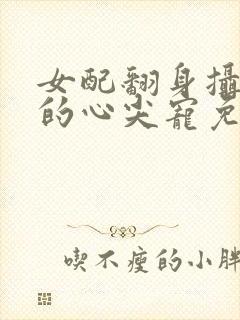 女配翻身攝
的心尖寵免
喫不瘦的小胖